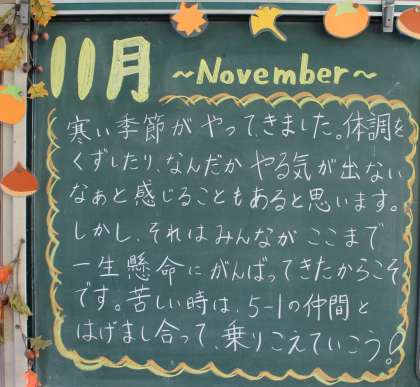 11月 ~November~
寒い季節がやってきました。体調を
くずしたり、なんだかやる気が出ない
なぁと感じることもあると思います。
しかし、それはみんながここまで
一生懸命にがんばってきたからこそ
です。苦しい時は、5-1の仲間と
はげまし合って、乗りこえていこう!